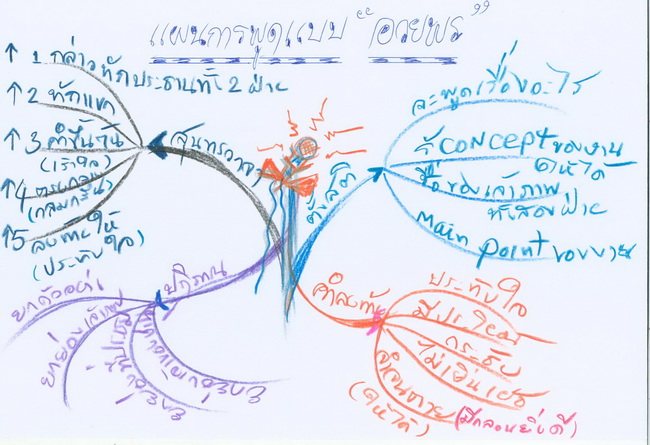 แผนการพูดแบบ "อวยพร"
สุนทรวาจา
↑ 1 กล่าวทักประธานทั้ง 2 ฝ่าย
↑ 2 ทักแขก
↑ 3 คำขึ้นต้น
(เร้าใจ)
↑ 4
(กลมกลืน)
↑ 5 ลงท้ายให้
(ประทับใจ)
ตั้งสติ
จะพูดเรื่องอะไร
รู้ CONCEPT ของงาน
ให้ได้
ชื่อของเจ้าภาพ
ทั้งสองฝ่าย
Main point ของงาน
ปฏิภาณ
ยกตัวอย่าง
ยกย่องเจ้าภาพ
คำลงท้าย
ประทับใจ
มีประโยชน์
กระชับ
ไม่เยิ่นเย้อ
(ให้ได้)
(มีกลอนยิ่งดี)